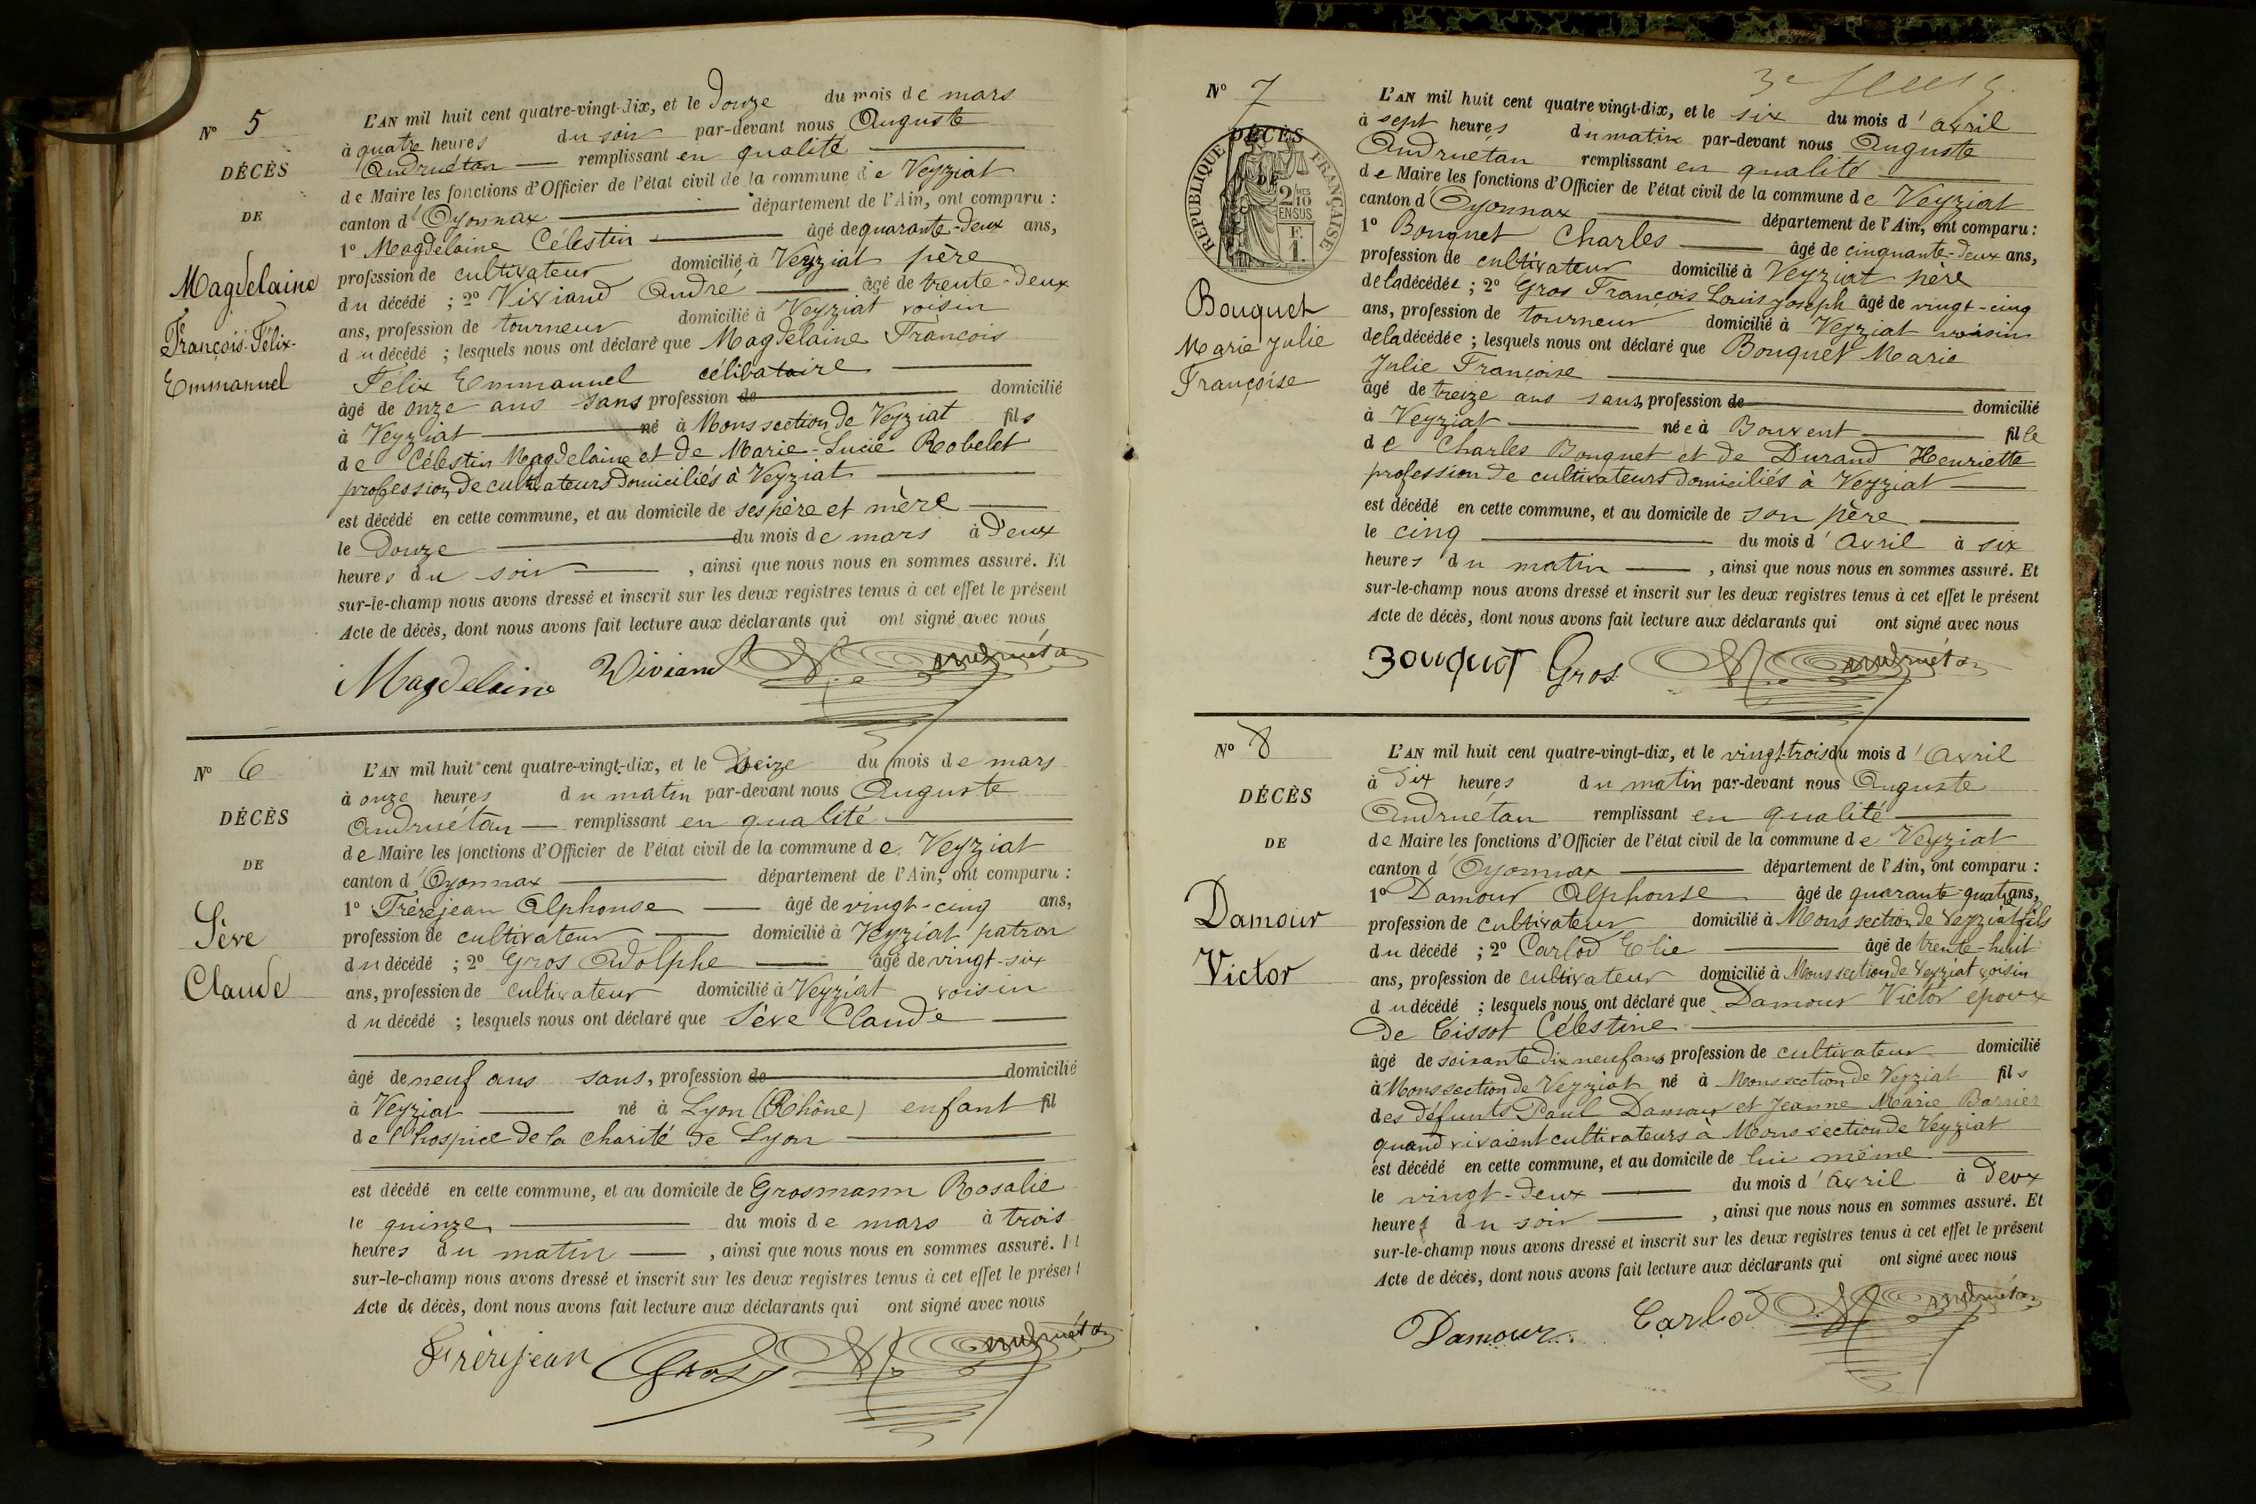 N° 5
DÉCÈS
DE
Magdelaine
François-Félix-
Emmanuel
L'AN mil huit cent quatre-vingt-dix, et le Douze du mois de mars
à quatre heures du soir par-devant nous Auguste
Andruétan remplissant en qualité
de Maire les fonctions d'Officier de l'état civil de la commune de Veyziat
canton d'Oyonnax département de l'Ain, ont comparu :
1° Magdelaine Célestin âgé de quarante-deux ans,
profession de cultivateur domicilié à Veyziat père
du décédé ; 2° Viviand André âgé de trente-deux
ans, profession de tourneur domicilié à Veyziat voisin
du décédé ; lesquels nous ont déclaré que Magdelaine François
Félix Emmanuel célibataire
âgé de onze ans sans profession de domicilié
à Veyziat né à Mons section de Veyziat fils
de Célestin Magdelaine et de Marie-Lucie Robelet
profession de cultivateurs domiciliés à Veyziat
est décédé en cette commune, et au domicile de ses père et mère
le Douze du mois de mars à Deux
heures du soir , ainsi que nous nous en sommes assuré. Et
sur-le-champ nous avons dressé et inscrit sur les deux registres tenus à cet effet le présent
Acte de décès, dont nous avons fait lecture aux déclarants qui ont signé avec nous
Magdelaine Viviand Andruétan
N° 6
DÉCÈS
DE
Sève
Claude
L'AN mil huit cent quatre-vingt-dix, et le Seize du mois de mars
à onze heures du matin par-devant nous Auguste
Andruétan remplissant en qualité
de Maire les fonctions d'Officier de l'état civil de la commune de Veyziat
canton d'Oyonnax département de l'Ain, ont comparu :
1° Frérejean Alphonse âgé de vingt-cinq ans,
profession de cultivateur domicilié à Veyziat patron
du décédé ; 2° Gros Adolphe âgé de vingt-six
ans, profession de cultivateur domicilié à Veyziat voisin
du décédé ; lesquels nous ont déclaré que Sève Claude
âgé de neuf ans sans, profession de domicilié
à Veyziat né à Lyon (Rhône) enfant fil
de l'hospice de la charité de Lyon
est décédé en cette commune, et au domicile de Grosmann Rosalie
le quinze du mois de mars à trois
heures du matin , ainsi que nous nous en sommes assuré. Et
sur-le-champ nous avons dressé et inscrit sur les deux registres tenus à cet effet le présent
Acte de décès, dont nous avons fait lecture aux déclarants qui ont signé avec nous
Frérejean Gros Andruétan
3e
N° 7
DÉCÈS
DE
RÉPUBLIQUE FRANÇAISE
2/10 EN SUS
F. 1.
Bouquet
Marie Julie
Françoise
L'AN mil huit cent quatre vingt-dix, et le six du mois d'avril
à sept heures du matin par-devant nous Auguste
Andruétan remplissant en qualité
de Maire les fonctions d'Officier de l'état civil de la commune de Veyziat
canton d'Oyonnax département de l'Ain, ont comparu :
1° Bouquet Charles âgé de cinquante-deux ans,
profession de cultivateur domicilié à Veyziat père
de la décédée ; 2° Gros François Louis Joseph âgé de vingt-cinq
ans, profession de tourneur domicilié à Veyziat voisin
de la décédée ; lesquels nous ont déclaré que Bouquet Marie
Julie Françoise
âgé de treize ans sans profession de domicilié
à Veyziat née à Bouvent fille
de Charles Bouquet et de Durand Henriette
profession de cultivateurs domiciliés à Veyziat
est décédé en cette commune, et au domicile de son père
le cinq du mois d'avril à six
heures du matin , ainsi que nous nous en sommes assuré. Et
sur-le-champ nous avons dressé et inscrit sur les deux registres tenus à cet effet le présent
Acte de décès, dont nous avons fait lecture aux déclarants qui ont signé avec nous
Bouquet Gros Andruétan
N° 8
DÉCÈS
DE
Damour
Victor
L'AN mil huit cent quatre-vingt-dix, et le vingt-trois du mois d'Avril
à Six heures du matin par-devant nous Auguste
Andruétan remplissant en qualité
de Maire les fonctions d'Officier de l'état civil de la commune de Veyziat
canton d'Oyonnax département de l'Ain, ont comparu :
1° Damour Alphonse âgé de quarante-quatre ans,
profession de cultivateur domicilié à Mons section de Veyziat fils
du décédé ; 2° Carlod Elie âgé de trente-huit
ans, profession de cultivateur domicilié à Mons section de Veyziat voisin
du décédé ; lesquels nous ont déclaré que Damour Victor époux
de Tissot Célestine
âgé de soixante dix neuf ans profession de cultivateur domicilié
à Mons section de Veyziat né à Mons section de Veyziat fils
des défunts Paul Damour et Jeanne Marie Barrier
quand vivaient cultivateurs à Mons section de Veyziat
est décédé en cette commune, et au domicile de lui même
le vingt-deux du mois d'Avril à Deux
heures du soir , ainsi que nous nous en sommes assuré. Et
sur-le-champ nous avons dressé et inscrit sur les deux registres tenus à cet effet le présent
Acte de décès, dont nous avons fait lecture aux déclarants qui ont signé avec nous
Damour Carlod Andruétan